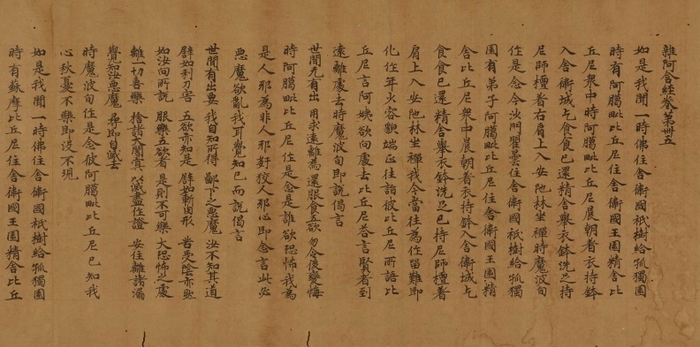 雜阿含經卷第卌五
如是我聞一時佛住舍衛國祇樹給孤獨園
時有阿臈毗比丘尼住舍衛國王園精舍比
丘尼衆中時阿臈毗比丘尼晨朝着衣持鉢
入舍衛城乞食食已還精舍舉衣鉢洗足持
尼師檀着右肩上入安陁林坐禪時魔波旬
作是念今沙門瞿曇住舍衛國祇樹給孤獨
園有弟子阿臈毗比丘尼住舍衛國王園精
舍比丘尼衆中晨朝着衣持鉢入舍衛城乞
食食已還精舍舉衣鉢洗足已持尼師檀着
肩上入安陁林坐禪我今當往為作留難即
化作年少容貌端正往詣彼比丘尼所語比
丘尼言阿姨欲向處去比丘尼荅言賢者到
遠離處去時魔波旬即說偈言
世間无有出 用求遠離為 還服食五欲 勿令後變悔
時阿臈毗比丘尼作是念是誰欲恐怖我為
是人耶為非人耶姧狡人耶心即念言此必
惡魔欲亂我耳覺知已而說偈言
世間有出要 我自知所得 鄙下之惡魔 汝不知其道
譬如利刀害 五欲亦如是 譬如斬肉形 苦受陰亦然
如汝向所說 服樂五欲者 是則不可樂 大恐怖之處
離一切喜樂 捨諸大闇冥 以滅盡作證 安住離諸漏
覺知汝惡魔 尋即自滅去
時魔波旬作是念彼阿臈毗比丘尼已知我
心愁憂不樂即沒不現
如是我聞一時佛住舍衛國祇樹給孤獨園
時有蘇摩比丘尼住舍衛國王園精舍比丘